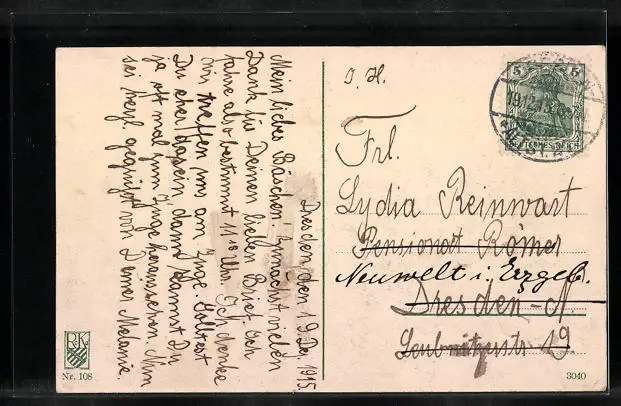 Dresden, den 19. Dez. 1915.
Mein liebes Bäschen! Zunächst vielen
Dank für Deinen lieben Brief. Ich
fahre also bestimmt 11 10 Uhr. Ich denke
wir treffen uns am Zuge. Solltest
Du eher dasein, dann kannst Du
ja oft mal zum Zuge heraussehen. Nun
sei herzl. gegrüßt von Deiner Melanie.
RK
Nr. 108
S. H.
Frl.
Lydia Reinwart
Pensionat Römer
Neuwelt i. Erzgeb.
Dresden-N
19
5 5
DEUTSCHES REICH
19.12.15
ALTST.
3040